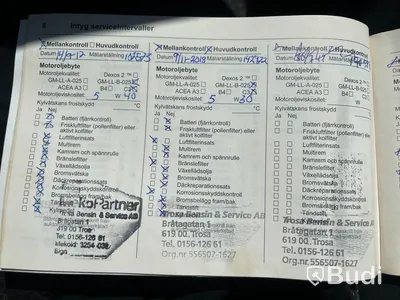 8 Intyg serviceintervaller
Mellankontroll Huvudkontroll
Datum Mätarställning
Motoroljebyte
Motoroljekvalitet: Dexos 2 ™
GM-LL-A-025 GM-LL-B-025
ACEA A3 B4 C3
Motoroljeviskositet: 5 W 40
Kylvätskans frostskydd °C
Ja Nej
Batteri (fjärrkontroll)
Friskluftfilter (pollenfilter) eller
aktivt kolfilter
Luftfilterinsats
Multirem
Kamrem och spännrulle
Bränslefilter
Växellådsolja
Bromsvätska
Däckreparationssats
Korrosionsskyddskontroll
Bromsbelägg fram/bak
Tändstift
MekoPartner
Trosa Bensin & Service AB
Bråtagatan 1
619 00 Trosa
Tel. 0156-126 81
Mekoid: 3254-036
Sign
Mellankontroll Huvudkontroll
Datum 9/11-2018 Mätarställning
Motoroljebyte
Motoroljekvalitet: Dexos 2 ™
GM-LL-A-025 GM-LL-B-025
ACEA A3 B4 C3
Motoroljeviskositet: 5 W 30
Kylvätskans frostskydd °C
Ja Nej
Batteri (fjärrkontroll)
Friskluftfilter (pollenfilter) eller
aktivt kolfilter
Luftfilterinsats
Multirem
Kamrem och spännrulle
Bränslefilter
Växellådsolja
Bromsvätska
Däckreparationssats
Korrosionsskyddskontroll
Bromsbelägg fram/bak
Tändstift
Trosa Bensin & Service AB
Bråtagatan 1
619 00. Trosa
Tel. 0156-126 81
Org.nr 556507-1627
Mellankontroll Huvudkontroll
Datum Mätarställning
Motoroljebyte
Motoroljekvalitet: Dexos 2
GM-LL-A-025 GM-LL-B-025
ACEA A3 B4 C3
Motoroljeviskositet: W
Kylvätskans frostskydd °C
Ja Nej
Batteri (fjärrkontroll)
Friskluftfilter (pollenfilter) eller
aktivt kolfilter
Luftfilterinsats
Multirem
Kamrem och spännrulle
Bränslefilter
Växellådsolja
Bromsvätska
Däckreparationssats
Korrosionsskyddskontroll
Bromsbelägg fram/bak
Tändstift
Trosa Bensin & Service AB
Bråtagatan 1
619 00 Trosa
Tel. 0156-126 81
Org.nr 556507-1627
Budi